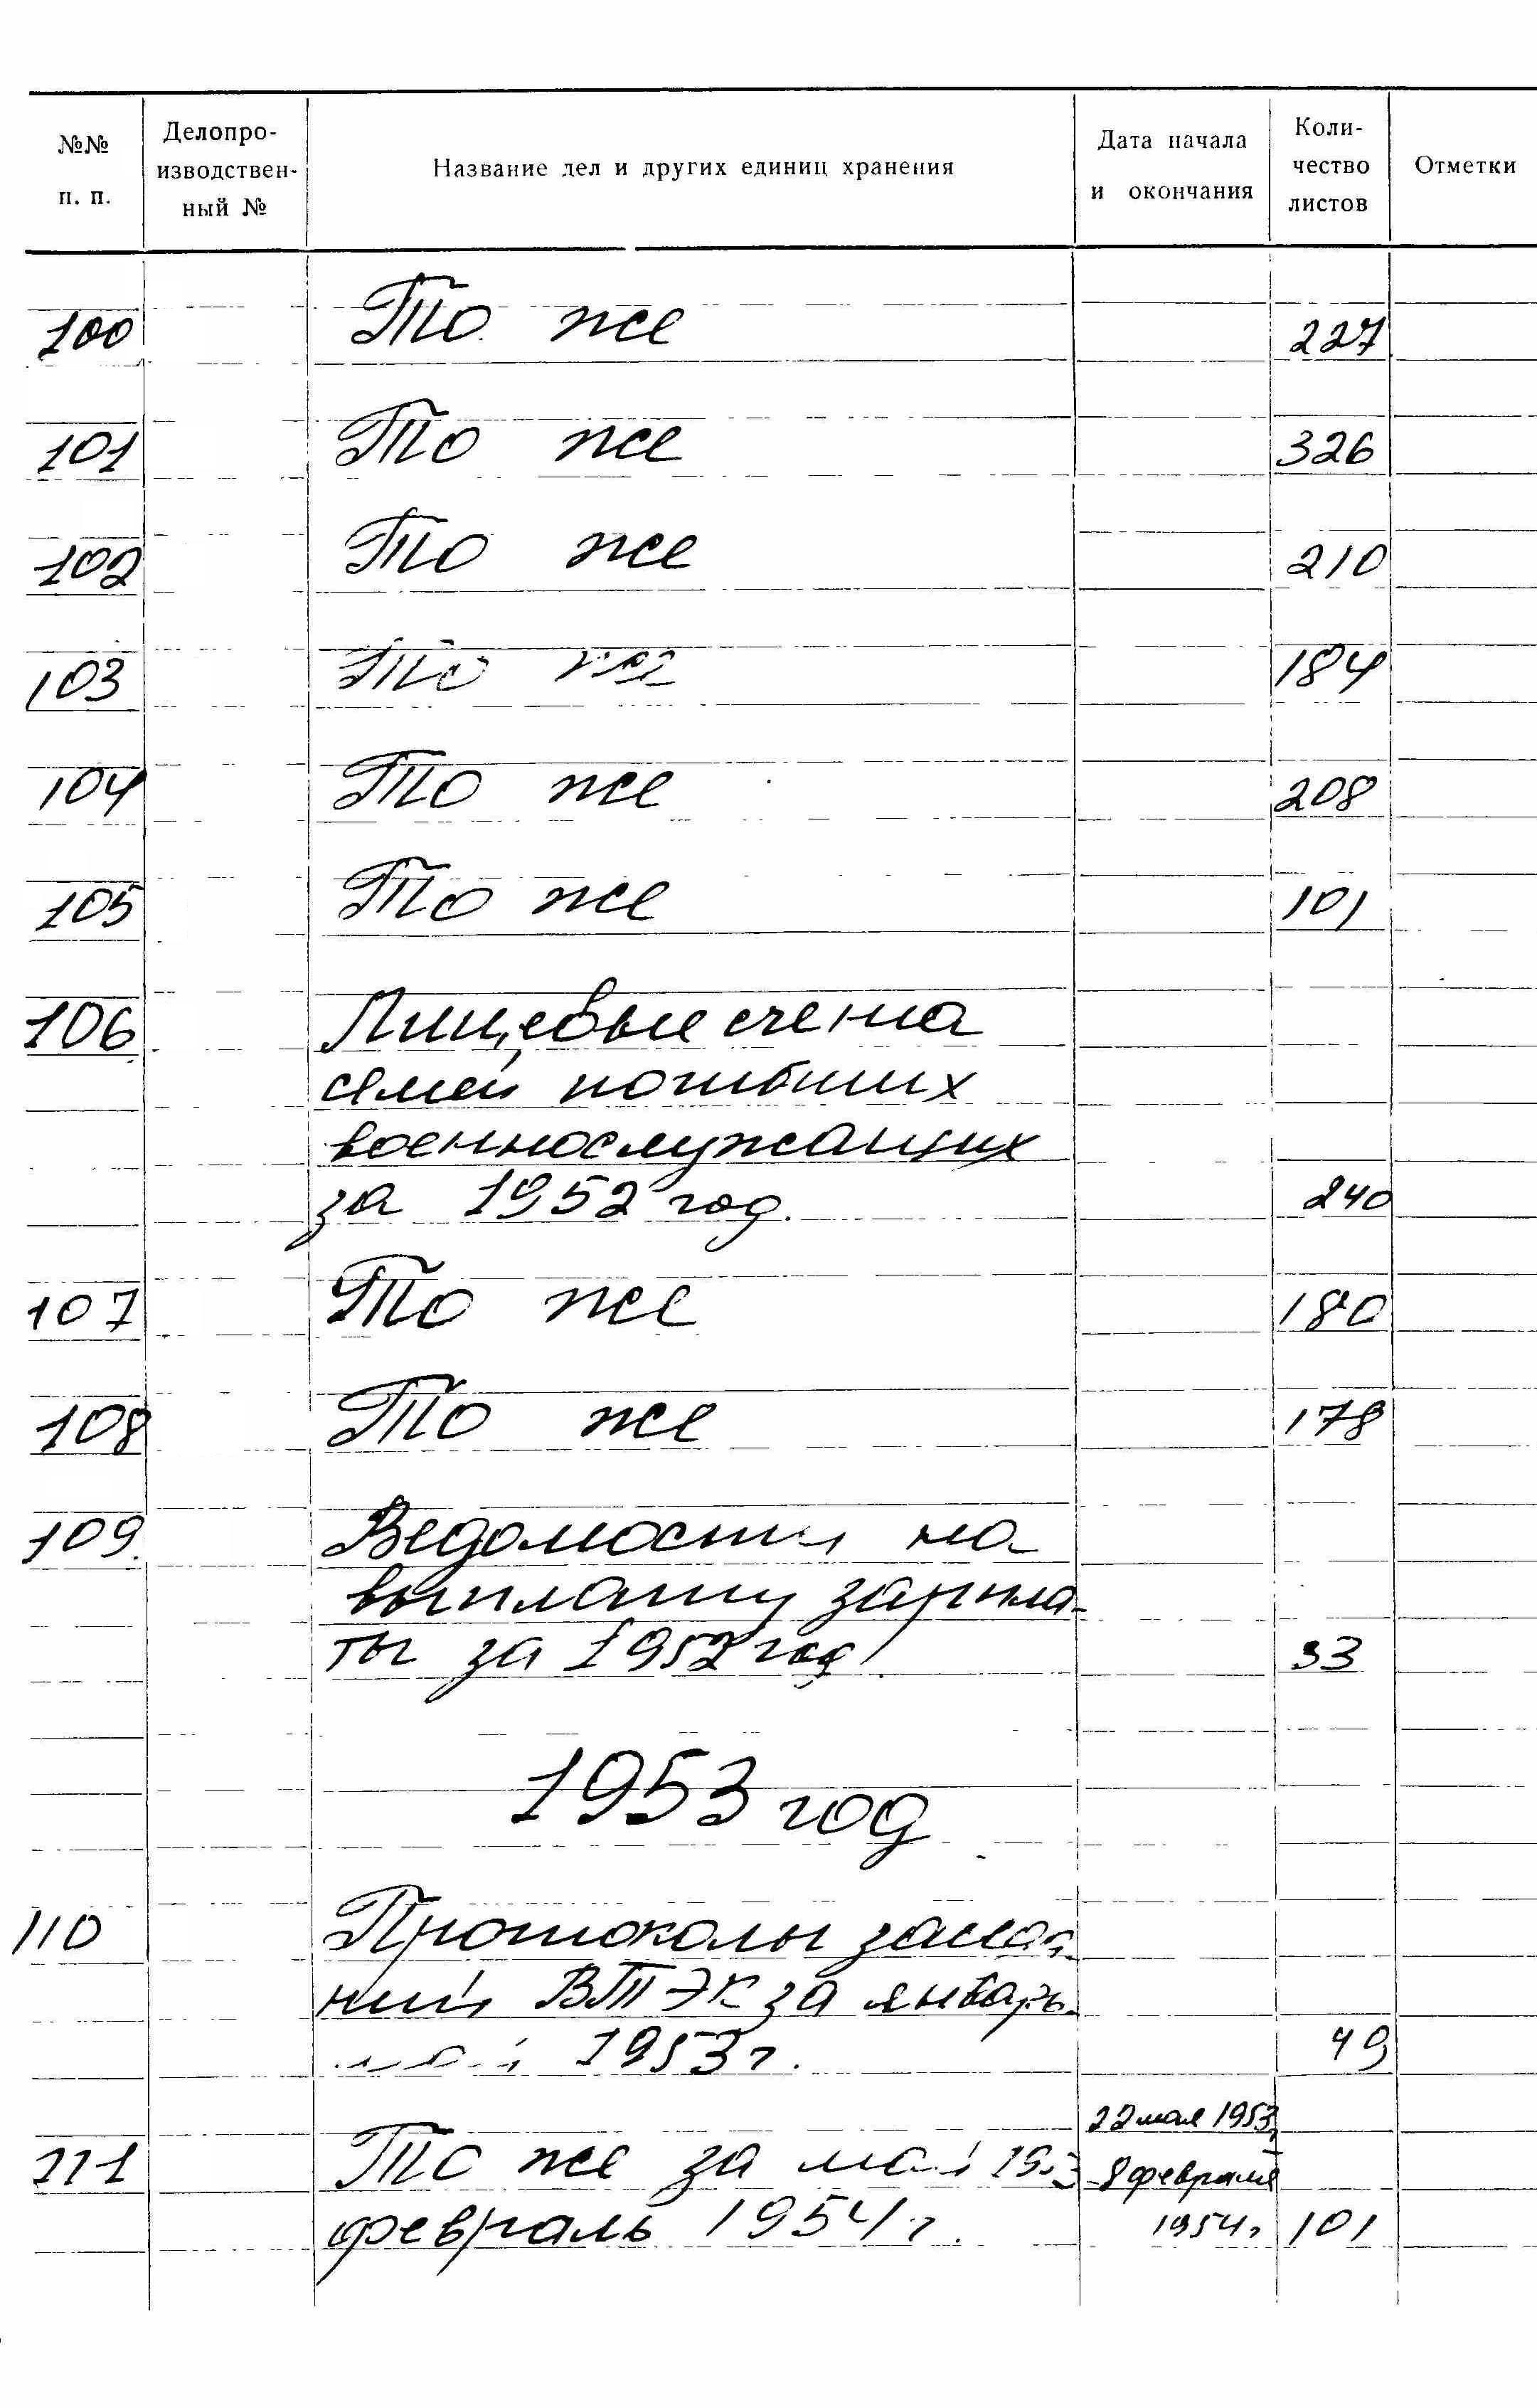 №№ п. п.
Делопро-
изводствен-
ный №
Название дел и других единиц хранения
Дата начала
и окончания
Коли-
чество
листов
Отметки
100 То же 227
101 То же 326
102 То же 210
103 То же 184
104 То же 208
105 То же 101
106 Лицевые счета
семей погибших
военнослужащих
за 1952 год. 240
107 То же 180
108 То же 178
109. Ведомости на
выплату зарпла-
ты за 1952 год. 33
1953 год
110 Протоколы заседа-
ний ВТЭК за январь-
май 1953 г. 49
22 мая 1953 г.
111 То же за май 1953 8 февраля
февраль 1954 г. 1954 г. 101